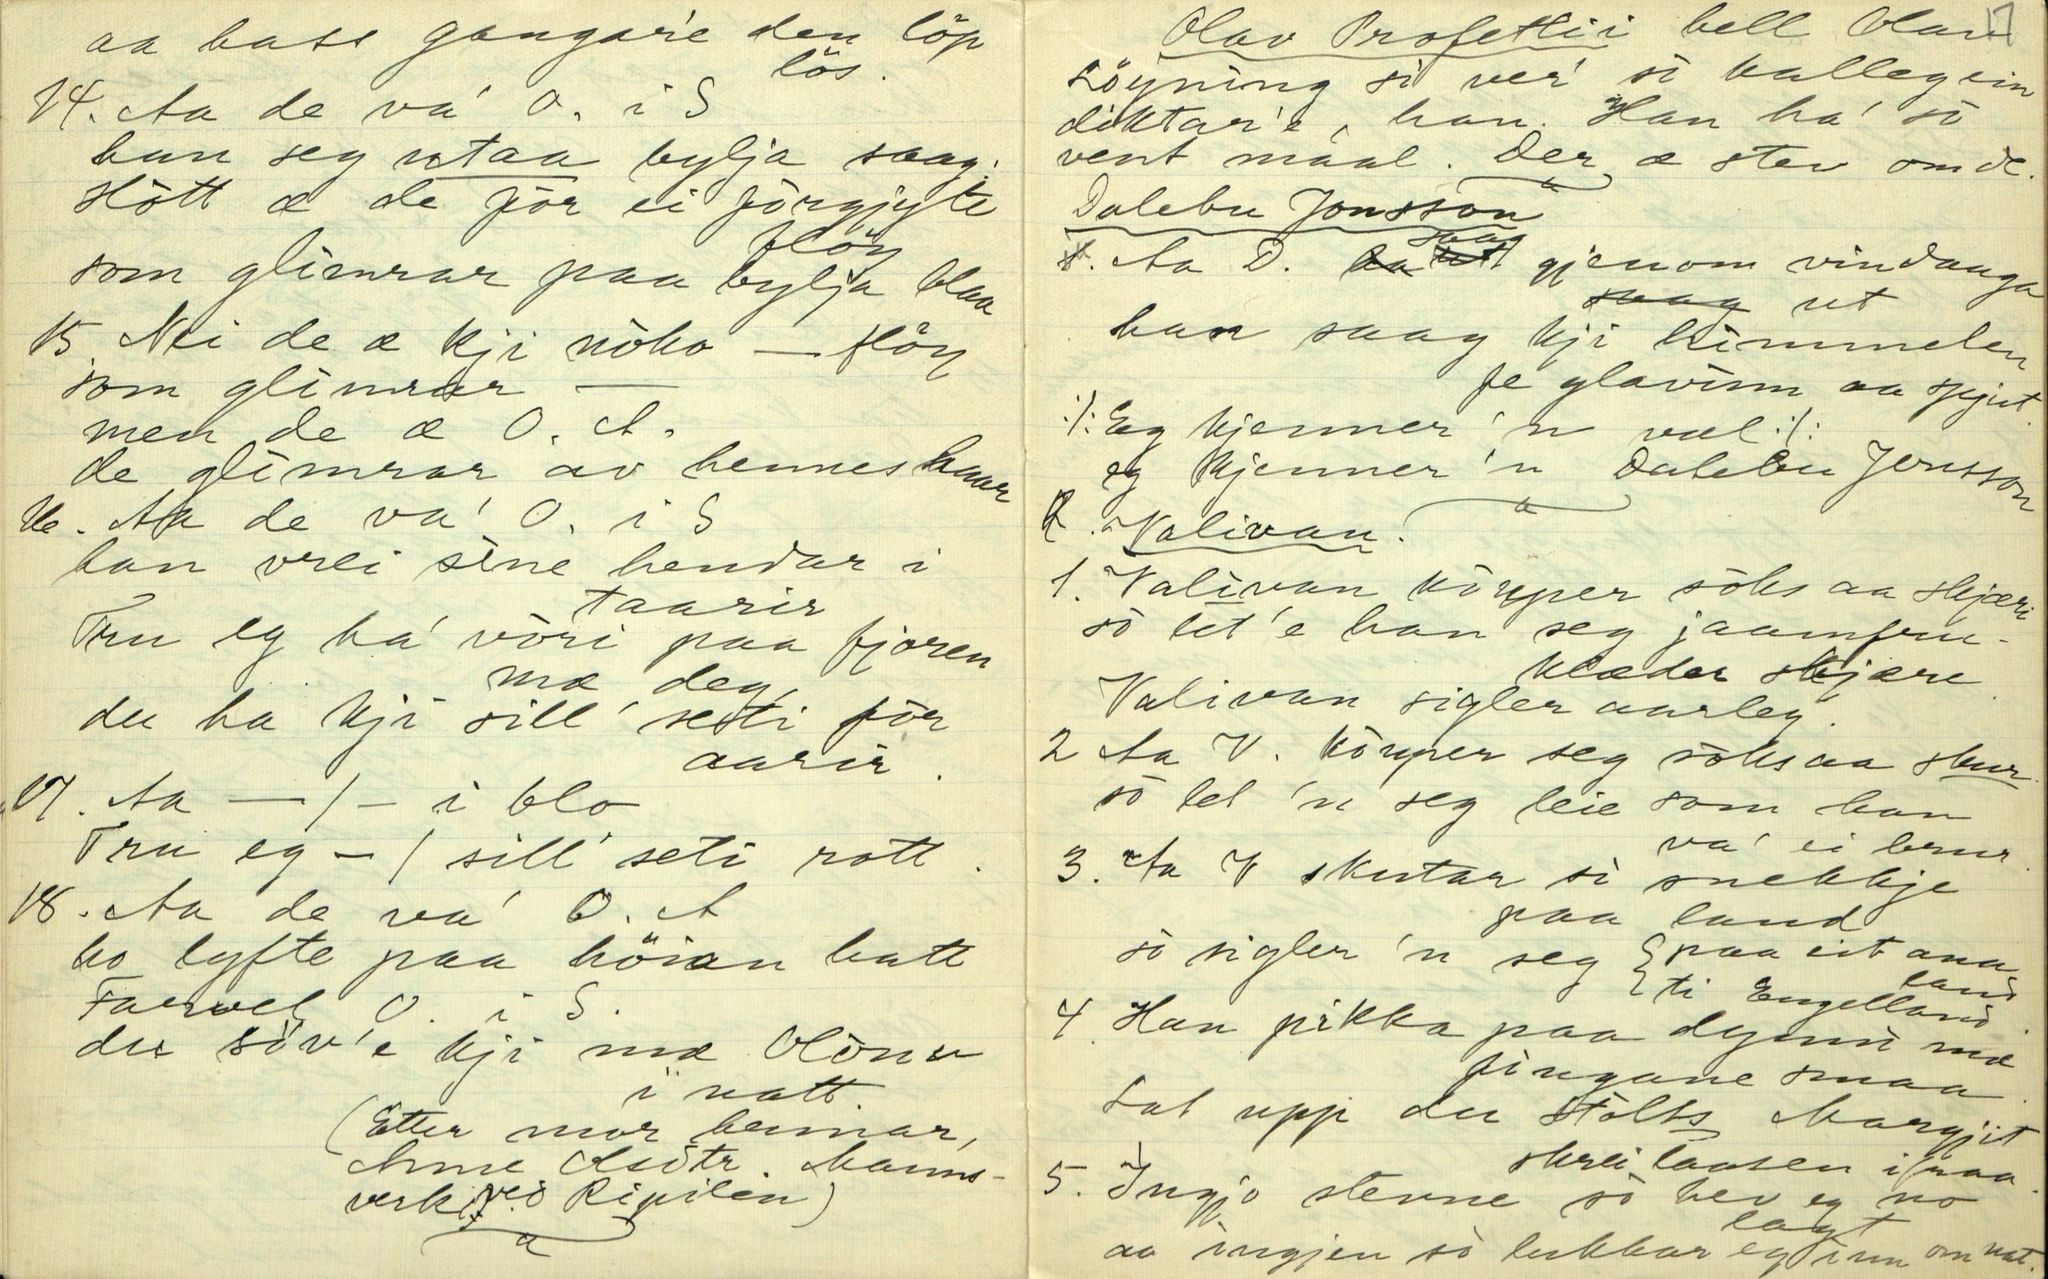 aa hass gangar'e den löp
lös.
14. Aa de va' O. i S
han seg utaa bylja saag.
slött æ de för ei förgjyte
flöy
som glimrar paa bylja blaa
15. Nei de æ kji nöko — flöy
som glimrar —
men de æ O. A.
de glimrar av hennes haar
16. Aa de va' O. i S
han vrei sine hendar i
taarir
Tru eg ha' vöri paa fjoren
mæ deg
du ha kji sill' seti för
aarir.
17. Aa — / — i blo
Tru eg — / sill' seti rott.
18. Aa de va' O. A
ho lyfte paa höian hatt
Farvel O. i S.
du söv'e kji mæ Olönu
i natt
(Etter mor hennar,
Anne Åsötr. Manns-
verk, ved Ripilen)
17
Olav Profetlii hell Olav
Löyning si ver' so kalleg ein
diktar'e, han. Han ha' so
vent maal. Der æ stev om de.
Dalebu Jonsson
1. Aa D. saag gjenom vindauga
ut
han saag kji himmelen
fe glavinn aa spjut.
:/: Eg kjenner 'n væl :/:
eg kjenner 'n Dalebu Jonsson
Valivan.
1. Valivan köyper söks aa skjæri
so let'e han seg jaamfru-
klæder skjære
Valivan sigler aarleg.
2 Aa V. köyper seg söks aa skur
so let 'n seg leie som han
va' ei brur.
3. Aa V skutar si snekkje
paa land
so sigler 'n seg { paa eit ana
land
{ ti Engelland.
4. Han pikka paa dynni mæ
fingane smaa
Lat upp du stolts Margjit
skrei laasen ifraa.
5. Ingjo stevne so hev eg no
lagt
aa ingjen so lukkar eg inn om nat.